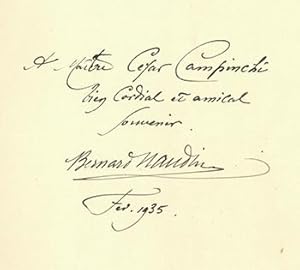 A Maître César Campinchi
bien cordial et amical
souvenir.
Bernard Naudin
Fev. 1935.